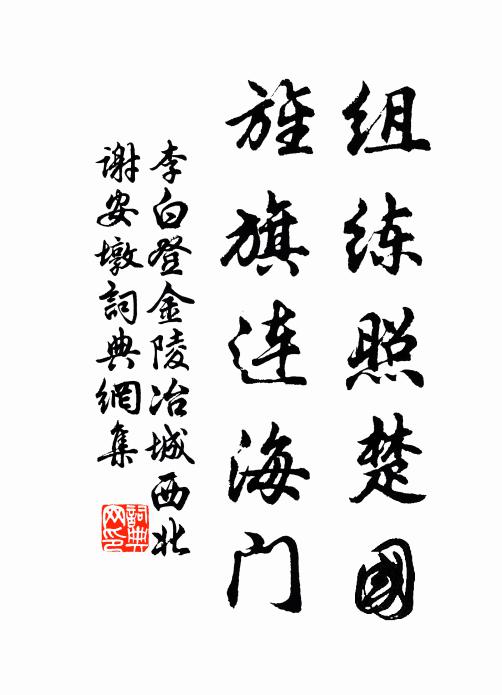 组练照楚國
旌旗连海门
李白登金陵冶城西北
谢安墩詞典網集
詞典网印